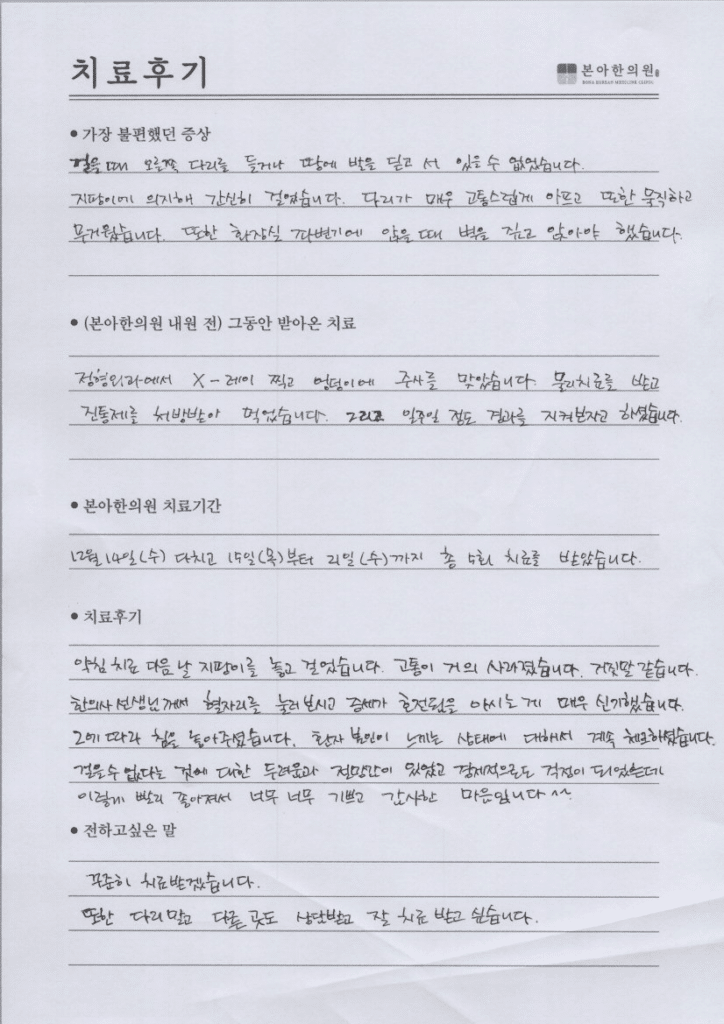 치료후기
본아한의원
BONA KOREAN MEDICINE CLINIC
• 가장 불편했던 증상
걸을때 오른쪽 다리를 들거나 땅에 발을 딛고 서 있을 수 없었습니다.
지팡이에 의지해 간신히 걸었습니다. 다리가 매우 고통스럽게 아프고 또한 묵직하고
무거웠습니다. 또한 화장실 좌변기에 앉을때 벽을 짚고 앉아야 했습니다.
• (본아한의원 내원 전) 그동안 받아온 치료
정형외과에서 X-레이 찍고 엉덩이에 주사를 맞았습니다. 물리치료를 받고
진통제를 처방받아 먹었습니다. 그리고 일주일 정도 경과를 지켜보자고 하셨습니다.
• 본아한의원 치료기간
12월 14일(수) 다치고 15일(목)부터 21일(수)까지 총 5회 치료를 받았습니다.
• 치료후기
약침 치료 다음날 지팡이를 놓고 걸었습니다. 고통이 거의 사라졌습니다. 거짓말 같습니다.
한의사 선생님께서 혈자리를 눌러보시고 증세가 호전됨을 아시는 게 매우 신기했습니다.
그에 따라 침을 놓아주셨습니다. 환자 본인이 느끼는 상태에 대해서 계속 체크하셨습니다.
걸을수 없다는 것에 대한 두려움과 절망감이 있었고 경제적으로도 걱정이 되었는데
이렇게 빨리 좋아져서 너무 너무 기쁘고 감사한 마음입니다 ^^
• 전하고싶은 말
꾸준히 치료받겠습니다.
또한 다리말고 다른 곳도 상담받고 잘 치료 받고 싶습니다.